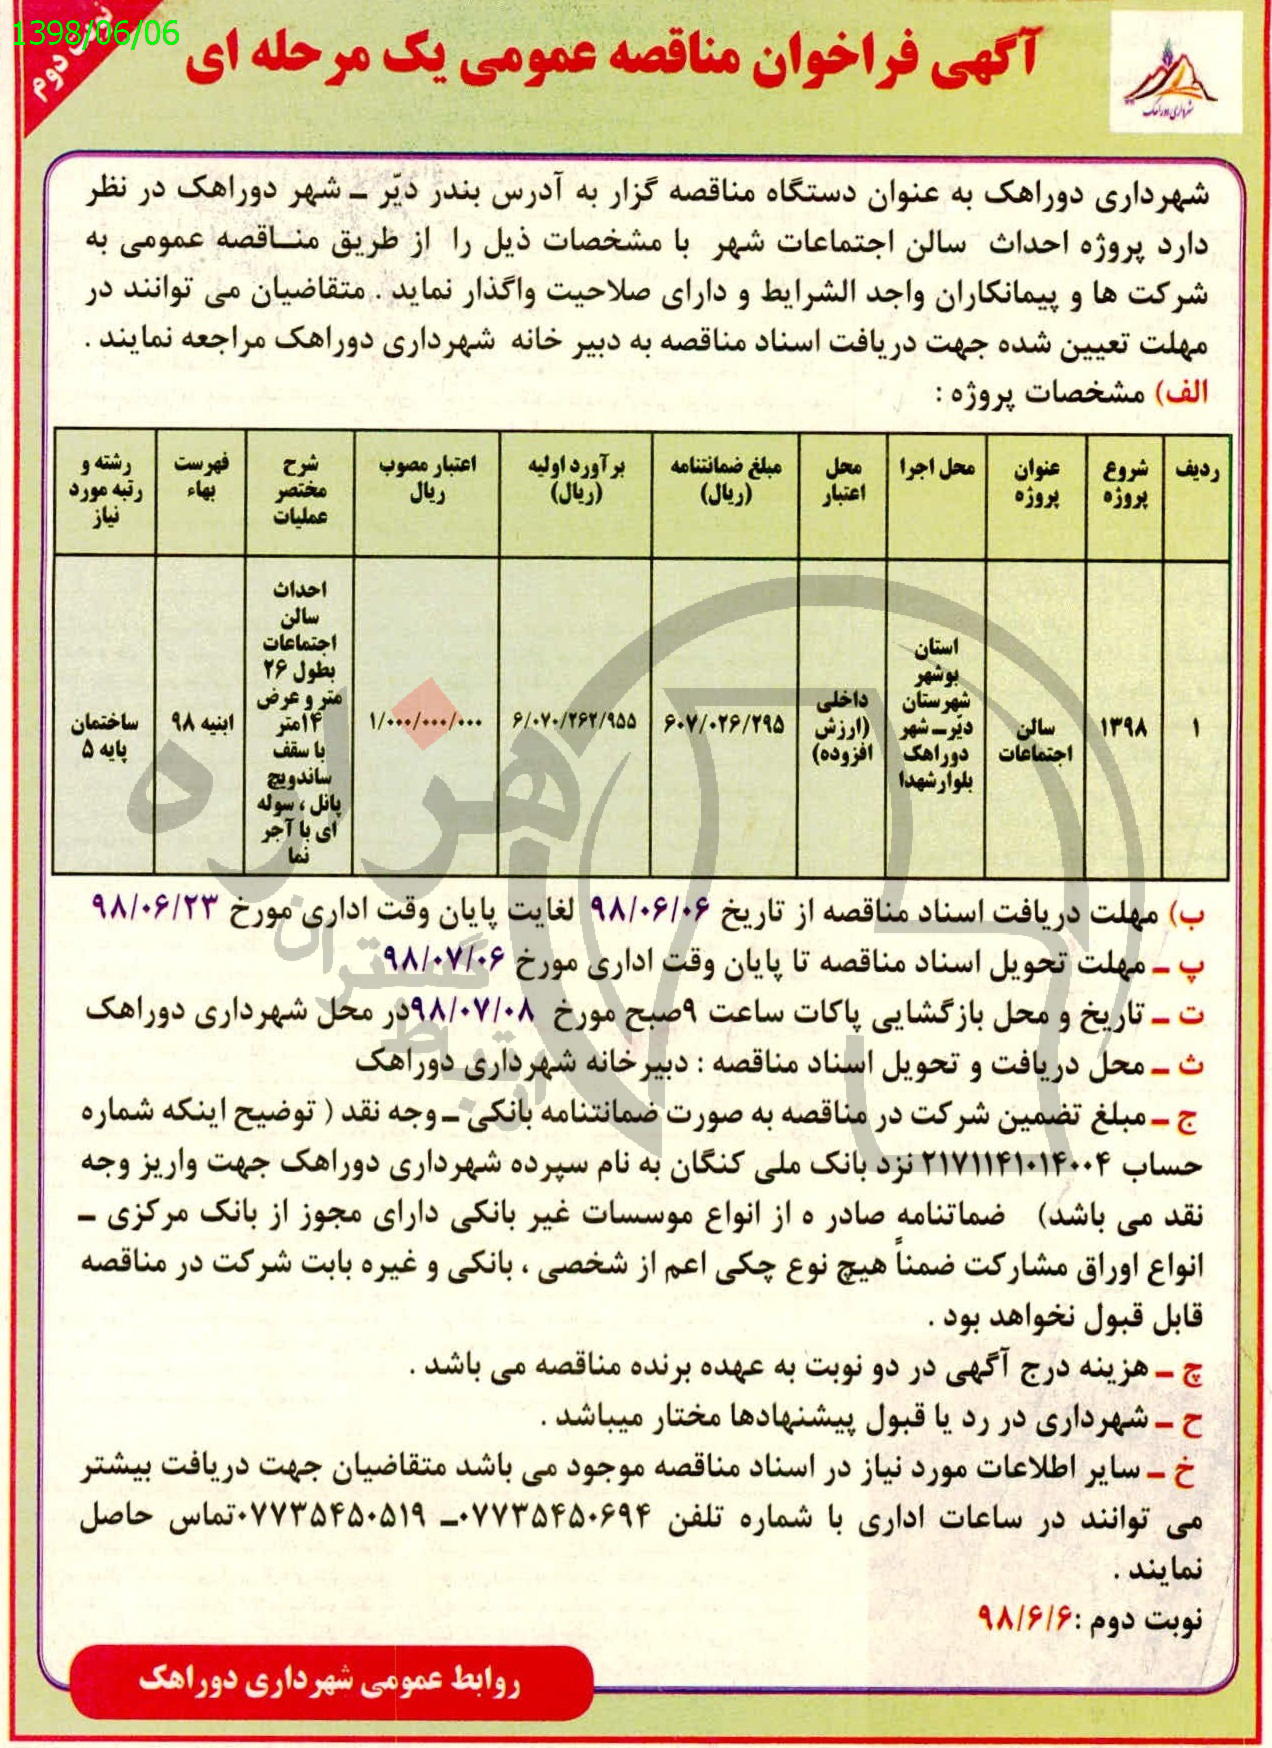 1398/06/06
نوبت دوم
آگهی فراخوان مناقصه عمومی یک مرحله ای
شهرداری دوراهک
شهرداری دوراهک به عنوان دستگاه مناقصه گزار به آدرس بندر دیّر ـ شهر دوراهک در نظر
دارد پروژه احداث سالن اجتماعات شهر با مشخصات ذیل را از طریق منـاقصه عمومی به
شرکت ها و پیمانکاران واجد الشرایط و دارای صلاحیت واگذار نماید . متقاضیان می توانند در
مهلت تعیین شده جهت دریافت اسناد مناقصه به دبیر خانه شهرداری دوراهک مراجعه نمایند .
الف) مشخصات پروژه :
ردیف
شروع
پروژه
عنوان
پروژه
محل اجرا
محل
اعتبار
مبلغ ضمانتنامه
(ریال)
برآورد اولیه
(ریال)
اعتبار مصوب
ریال
شرح
مختصر
عملیات
فهرست
بهاء
رشته و
رتبه مورد
نیاز
۱
۱۳۹۸
سالن
اجتماعات
استان
بوشهر
شهرستان
دیّر ـ شهر
دوراهک
بلوارشهدا
داخلی
(ارزش
افزوده)
۶۰۷/۰۲۶/۲۹۵
۶/۰۷۰/۲۶۲/۹۵۵
۱/۰۰۰/۰۰۰/۰۰۰
احداث
سالن
اجتماعات
بطول ۲۶
متر و عرض
۱۴متر
با سقف
ساندویچ
پانل ، سوله
ای با آجر
نما
ابنیه ۹۸
ساختمان
پایه ۵
ب) مهلت دریافت اسناد مناقصه از تاریخ ۹۸/۰۶/۰۶ لغایت پایان وقت اداری مورخ ۹۸/۰۶/۲۳
پ ـ مهلت تحویل اسناد مناقصه تا پایان وقت اداری مورخ ۹۸/۰۷/۰۶
ت ـ تاریخ و محل بازگشایی پاکات ساعت ۹صبح مورخ ۹۸/۰۷/۰۸در محل شهرداری دوراهک
ث ـ محل دریافت و تحویل اسناد مناقصه : دبیرخانه شهرداری دوراهک
ج ـ مبلغ تضمین شرکت در مناقصه به صورت ضمانتنامه بانکی ـ وجه نقد ( توضیح اینکه شماره
حساب ۲۱۷۱۱۴۱۰۱۴۰۰۴ نزد بانک ملی کنگان به نام سپرده شهرداری دوراهک جهت واریز وجه
نقد می باشد) ضماتنامه صادر ه از انواع موسسات غیر بانکی دارای مجوز از بانک مرکزی ـ
انواع اوراق مشارکت ضمناً هیچ نوع چکی اعم از شخصی ، بانکی و غیره بابت شرکت در مناقصه
قابل قبول نخواهد بود .
چ ـ هزینه درج آگهی در دو نوبت به عهده برنده مناقصه می باشد .
ح ـ شهرداری در رد یا قبول پیشنهادها مختار میباشد .
خ ـ سایر اطلاعات مورد نیاز در اسناد مناقصه موجود می باشد متقاضیان جهت دریافت بیشتر
می توانند در ساعات اداری با شماره تلفن ۰۷۷۳۵۴۵۰۶۹۴ـ ۰۷۷۳۵۴۵۰۵۱۹تماس حاصل
نمایند .
نوبت دوم :۹۸/۶/۶
روابط عمومی شهرداری دوراهک
هزاره
گستران
ارتباط